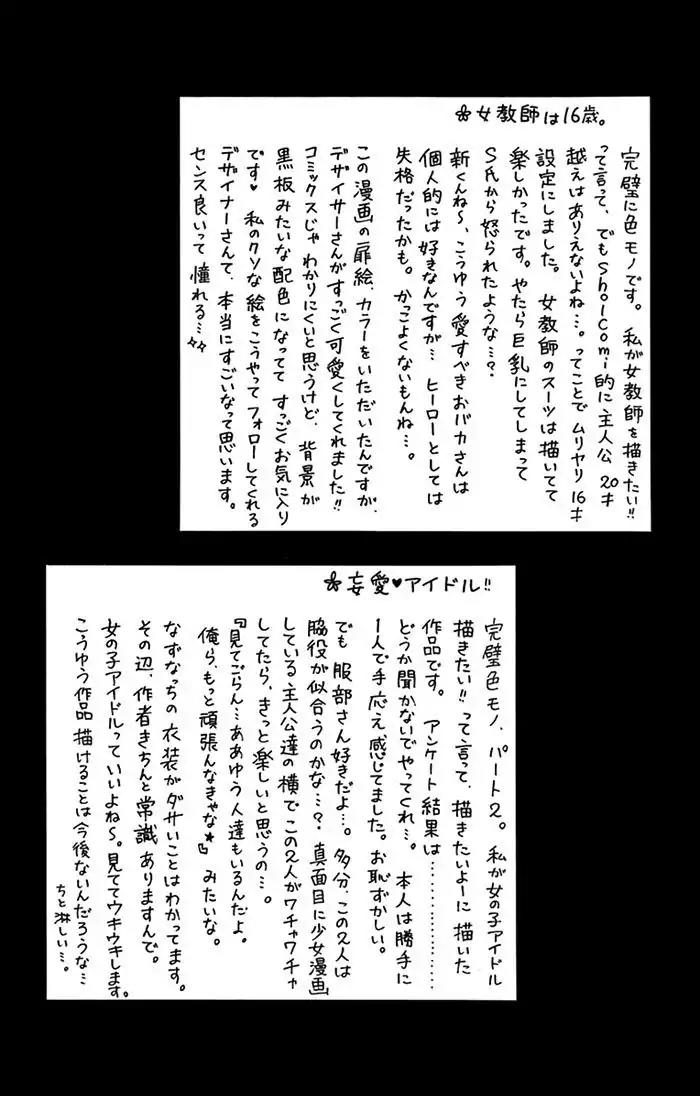 ❀女教師は16歳。
完璧に色モノです。 私が女教師を描きたい!!
って言って、でもSho-Comi的に主人公20才
越えはありえないよね…。ってことでムリヤリ16才
設定にしました。 女教師のスーツは描いてて
楽しかったです。やたら巨乳にしてしまって
S氏から怒られたような…?
新くんね〜、こうゆう愛すべきおバカさんは
個人的には好きなんですが… ヒーローとしては
失格だったかも。かっこよくないもんね…。
この漫画の扉絵、カラーをいただいたんですが、
デザイナーさんがすっごく可愛くしてくれました!!
コミックスじゃわかりにくいと思うけど、背景が
黒板みたいな配色になってて すっごくお気に入り
です♥ 私のクソな絵をこうやってフォローしてくれる
デザイナーさんて、本当にすごいなって思います。
センス良いって憧れる…
❀妄愛♥アイドル!!
完璧色モノ、パート2。 私が女の子アイドル
描きたい!!って言って、描きたいよーに描いた
作品です。 アンケート結果は………………
どうか聞かないでやってくれ…。 本人は勝手に
1人で手応え感じてました。お恥ずかしい。
でも服部さん好きだよ…。多分、この2人は
脇役が似合うのかな…? 真面目に少女漫画
している主人公達の横でこの2人がワチャワチャ
してたら、きっと楽しいと思うの…。
『見てごらん…ああゆう人達もいるんだよ。
俺ら、もっと頑張んなきゃな★』みたいな。
なずなっちの衣装がダサいことはわかってます。
その辺、作者きちんと常識ありますんで。
女の子アイドルっていいよね〜。見ててウキウキします。
こうゆう作品描けることは今後ないんだろうな…
ちと淋しい…。